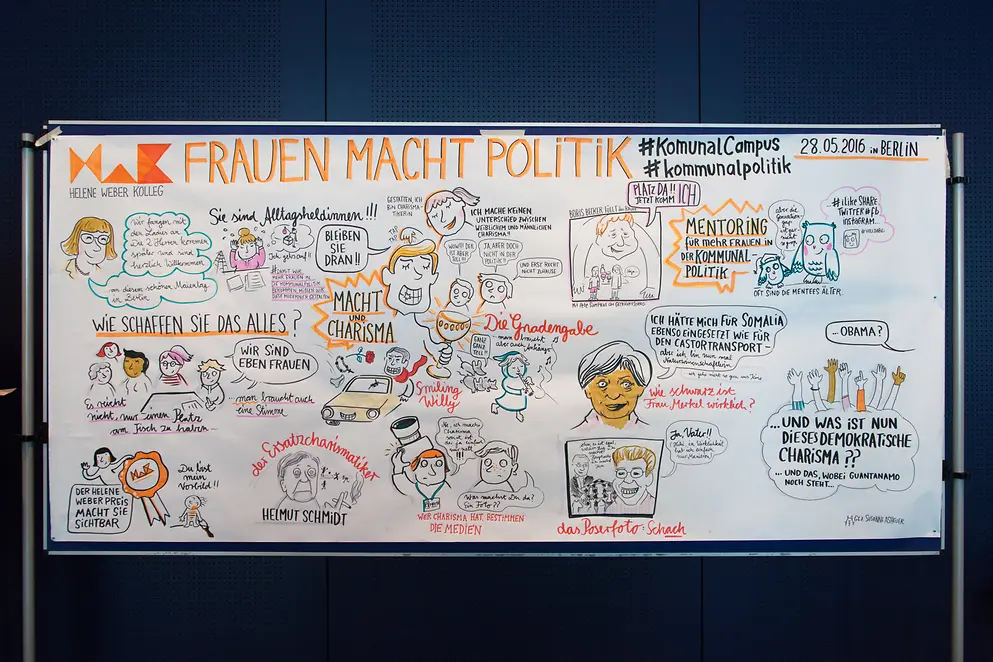 HELENE WEBER KOLLEG
FRAUEN MACHT POLITIK
#KomunalCampus
#kommunalpolitik
28.05.2016 in BERLIN
Wir fangen mit
den Ladies an
Die 2 Herren kommen
später und sind
herzlich willkommen
an diesem schönen Maientag
in Berlin
Sie sind Alltagsheldinnen!!!
BLEIBEN
SIE
DRAN!!
GESTATTEN, ICH
BIN CHARISMA-
TIKERIN
ICH MACHE KEINEN
UNTERSCHIED ZWISCHEN
WEIBLICHEM UND MÄNNLICHEM
CHARISMA!!
WOW!!! DER
IST ABER
TOLL!!
JA, ABER DOCH
NICHT IN DER
POLITIK!!
UND ERST RECHT
NICHT ZUHAUSE
MACHT
UND
CHARISMA
PLATZ DA!! ICH
JETZT KOMM
MENTORING
FÜR MEHR FRAUEN IN
DER KOMMUNAL-
POLITIK
OFT SIND DIE MENTEES ÄLTER.
#ilike SHARE
TWITTER #fb
INSTAGRAM...
WIE SCHAFFEN SIE DAS ALLES?
WIR SIND
EBEN FRAUEN
man braucht auch
eine Stimme
Es reicht
nicht, nur einen Platz
am Tisch zu haben-
Die Gnadengabe
man braucht
aber auch Anhänger
GANZ
GANZ
TOLL!!
Smiling
Willy
ICH HÄTTE MICH FÜR SOMALIA
EBENSO EINGESETZT WIE FÜR
DEN CASTORTRANSPORT-
aber ich bin nun mal
Naturwissenschaftlerin
wie schwarz ist
Frau Merkel wirklich?
...OBAMA?
...UND WAS IST NUN
DIESES DEMOKRATISCHE
CHARISMA??
... UND DAS, WOBEI GUANTANAMO
NOCH STEHT...
DER HELENE
WEBER PREIS
MACHT SIE
SICHTBAR
Du bist
mein
Vorbild!!
der Ersatzcharismatiker
HELMUT SCHMIDT
Was machst Du da?
Ein Foto??
WER CHARISMA HAT, BESTIMMEN
DIE MEDIEN
Ja, Vater!!
das Poserfoto: Schach